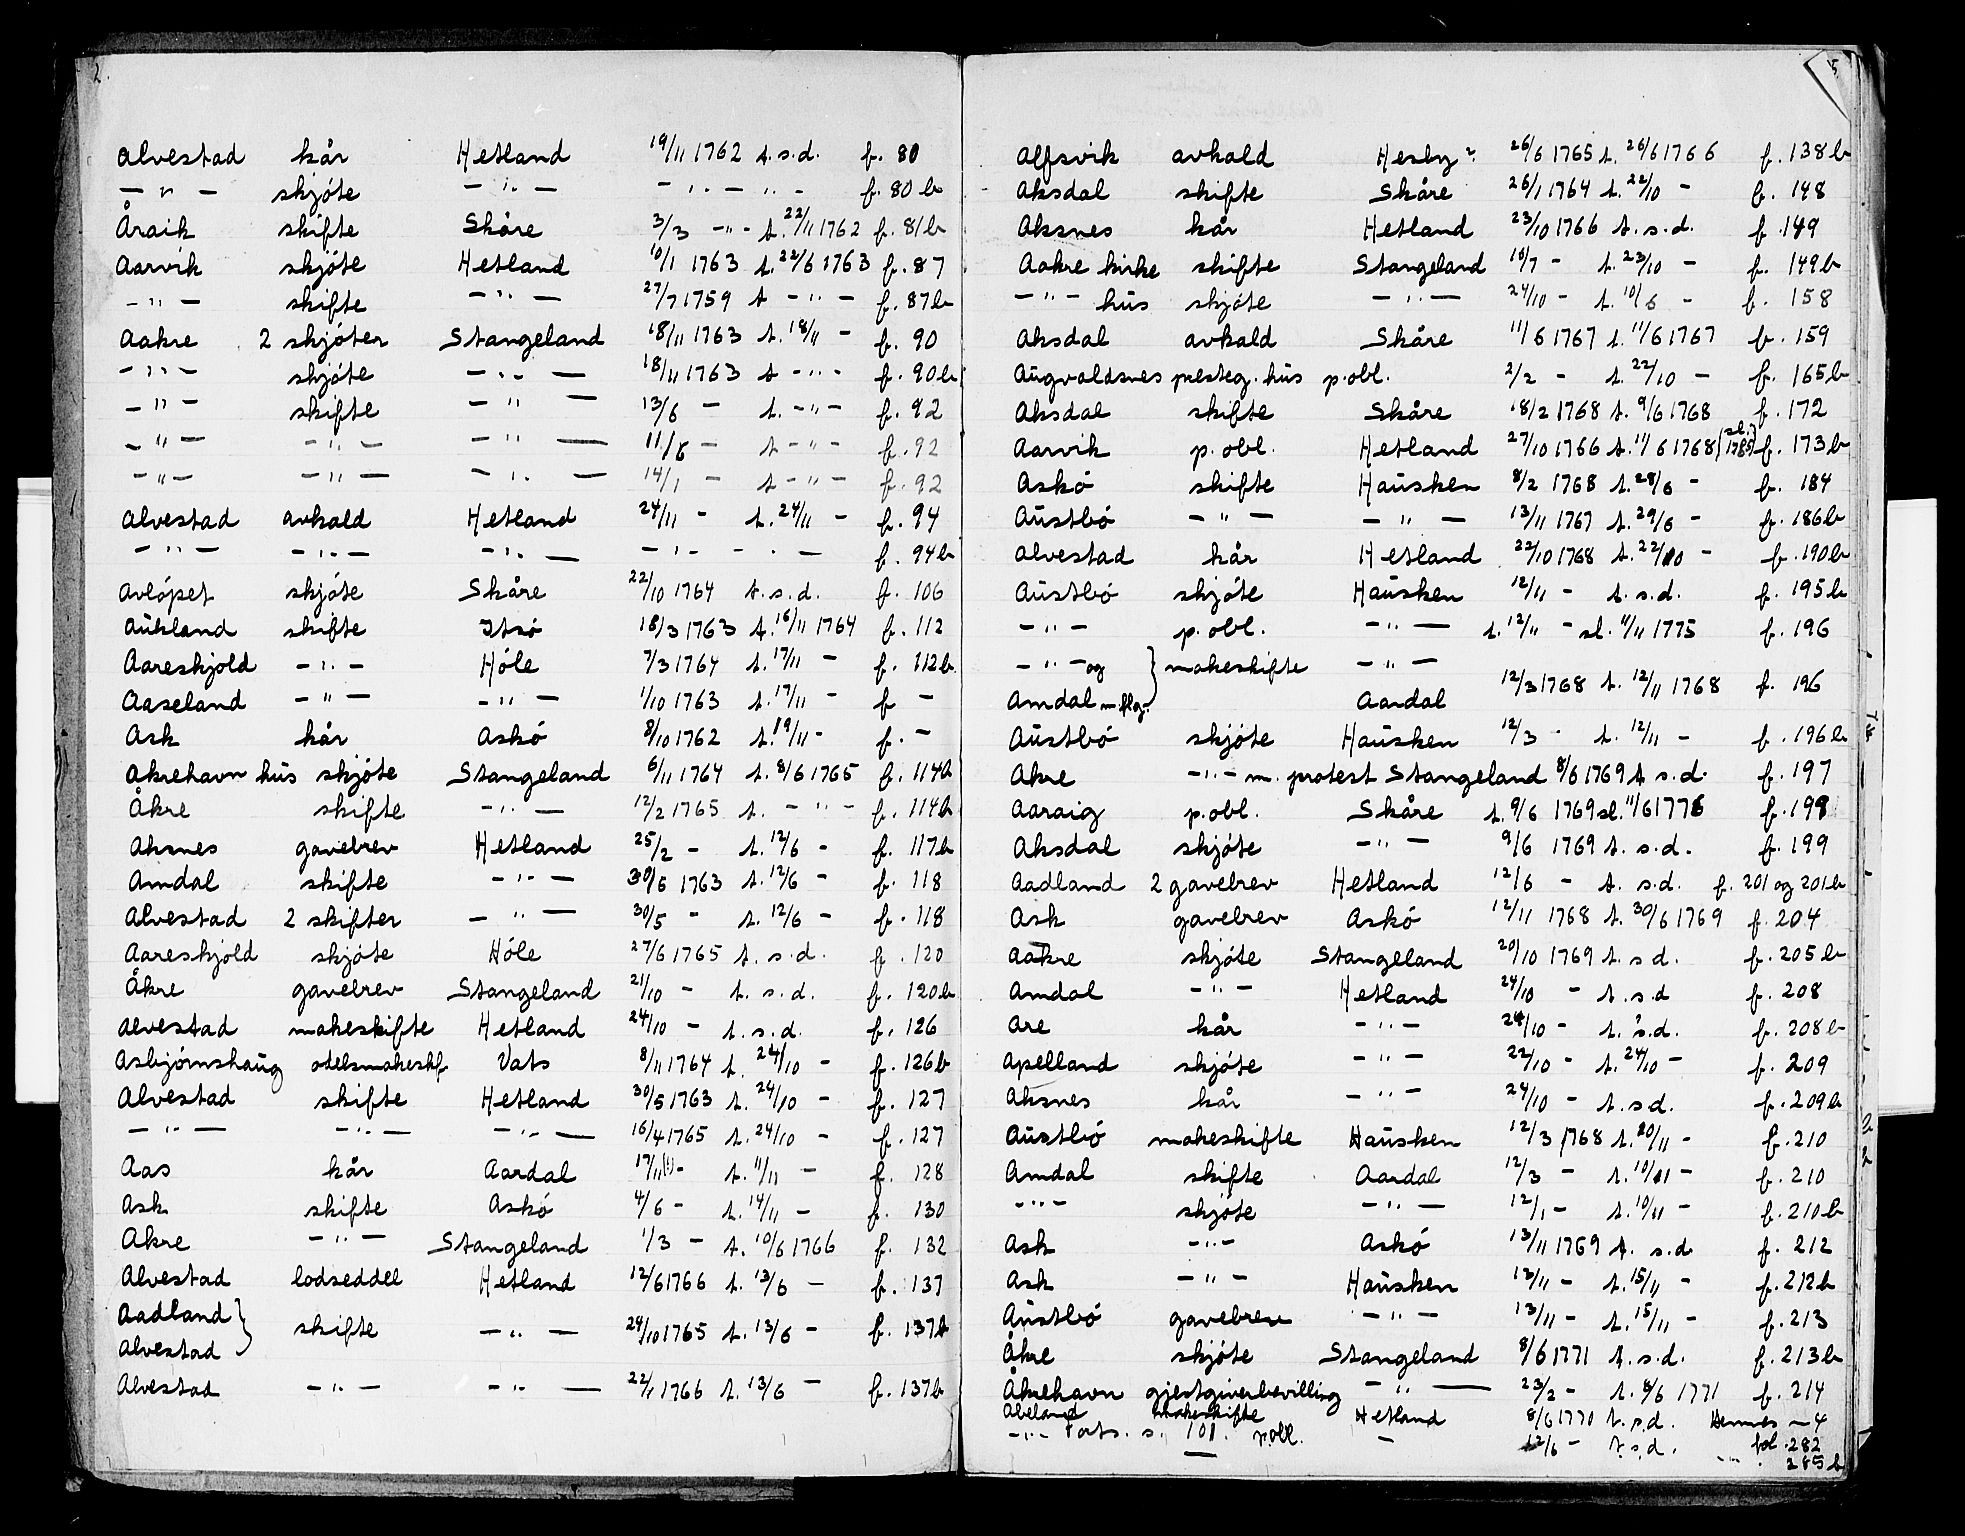 2.
Alvestad kår Hetland 19/11 1762 t.s.d. f. 80
— " — skjöte — " — — " — " — f. 80 b
Åraik skifte Skåre 3/3 — " — t. 22/11 1762 f. 81b
Aarvik skjöte Hetland 10/1 1763 t. 22/6 1763 f. 87
— " — skifte — " — 27/7 1759 t — " — f. 87b
Aakre 2 skjöter Stangeland 18/11 1763 t. 18/11 — f. 90
— " — skjöte — " — 18/11 1763 t — " — f. 90b
— " — skifte — " — 13/6 — t. — " — f. 92
— " — — " — — " — 11/6 — t — " — f. 92
— " — — " — — " — 14/1 — t — " — f. 92
Alvestad avkald Hetland 24/11 — t. 24/11 — f. 94
— " — — " — — " — — " — — " — f. 94b
Avlöpet skjöte Skåre 22/10 1764 t.s.d. f. 106
Aukland skifte Itsö 18/3 1763 t. 16/11 1764 f. 112
Aareskjold — " — Höle 7/3 1764 t. 17/11 — f. 112b
Aaseland — " — — " — 1/10 1763 t. 17/11 — f —
Ask kår Askö 8/10 1762 t. 19/11 — f. —
Akrehavn hus skjöte Stangeland 6/11 1764 t. 8/6 1765 f. 114b
Åkre skifte — " — 12/2 1765 t. — " — f. 114b
Aksnes gavebrev Hetland 25/2 — t. 12/6 — f. 117b
Amdal skifte — " — 30/5 1763 t. 12/6 — f. 118
Alvestad 2 skifter — " — 30/5 — t. 12/6 — f. 118
Aareskjold skjöte Höle 27/6 1765 t. s.d. f. 120
Åkre gavebrev Stangeland 21/10 — t. s.d. f. 120b
Alvestad makeskifte Hetland 24/10 — t. s.d. f. 126
Asbjörnshaug odelsmakeskf Vats 8/11 1764 t. 24/10 — f. 126b
Alvestad skifte Hetland 30/5 1763 t. 24/10 — f. 127
— " — — " — — " — 16/4 1765 t. 24/10 — f. 127
Aas kår Aardal 17/11 (!) — t. 11/11 — f. 128
Ask skifte Askö 4/6 — t. 14/11 — f. 130
Akre — " — Stangeland 1/3 — t. 10/6 1766 f. 132
Alvestad lodseddel Hetland 12/6 1766 t. 13/6 — f. 137
Aadland }
skifte — " — 24/10 1765 t. 13/6 — f. 137b
Alvestad
Alvestad — " — — " — 22/1 1766 t. 13/6 — f. 137b
5
Alfsvik avkald Hesby? 26/6 1765 t. 26/6 1766 f. 138b
Aksdal skifte Skåre 26/1 1764 t. 22/10 — f. 148
Aksnes kår Hetland 23/10 1766 t. s.d. f. 149
Aakre kirke skifte Stangeland 18/7 — t. 23/10 — f. 149b
— " — hus skjöte — " — 24/10 — t. 10/6 — f. 158
Aksdal avkald Skåre 11/6 1767 t. 11/6 1767 f. 159
Augvaldsnes presteg. hus p.obl. 2/2 — t. 22/10 — f. 165b
Aksdal skifte Skåre 18/2 1768 t. 9/6 1768 f. 172
Aarvik p. obl. Hetland 27/10 1766 t. 11/6 1768 (sl. 1785) f. 173b
Askö skifte Hausken 8/2 1768 t. 28/6 — f. 184
Austbö — " — — " — 13/11 1767 t. 29/6 — f. 186b
Alvestad kår Hetland 22/10 1768 t. 22/10 — f. 190b
Austbö skjöte Hausken 12/11 — t. s.d. f. 195b
— " — p. obl. — " — t. 12/11 — sl. 11/11 1775 f. 196
— " — og } makeskifte — " —
12/3 1768 t. 12/11 1768 f. 196
Amdal m flg. Aardal
Austbö skjöte Hausken 12/3 — t. 12/11 — f. 196b
Akre — " — m. protest Stangeland 8/6 1769 t s.d. f. 197
Aaraig p.obl. Skåre t. 9/6 1769 sl. 11/6 1776 f. 198
Aksdal skjöte — " — 9/6 1769 t. s.d. f. 199
Aadland 2 gavebrev Hetland 12/6 — t. s.d. f. 201 og 201b
Ask gavebrev Askö 12/11 1768 t. 30/6 1769 f. 204
Aakre skjöte Stangeland 20/10 1769 t. s d. f. 205b
Amdal — " — Hetland 24/10 — t. s.d f. 208
Are kår — " — 24/10 — t. s.d. f. 208b
Apelland skjöte — " — 22/10 — t. 24/10 — f. 209
Aksnes kår — " — 24/10 — t. s d. f. 209b
Austbö makeskifte Hausken 12/3 1768 t. 20/11 — f. 210
Amdal skifte Aardal 12/3 — t. 10/11 — f. 210
— " — skjöte — " — 12/1 — t. 10/11 — f. 210b
Ask — " — Askö 13/11 1769 t. s.d. f. 212
Ask — " — Hausken 13/11 — t. 15/11 — f. 212b
Austbö gavebrev — " — 13/11 — t. 15/11 — f. 213
Åkre skjöte Stangeland 8/6 1771 t. s.d. f. 213b
Åkrehavn gjestgiverbevilling — " — 23/2 — t. 8/6 1771 f. 214
Abeland makeskifte Hetland 8/6 1770 t.s.d. — 4
— " — Forts. s. 101. p.obl. — 12/6 — t.s.d. fol. 282
— — " — . 285 b